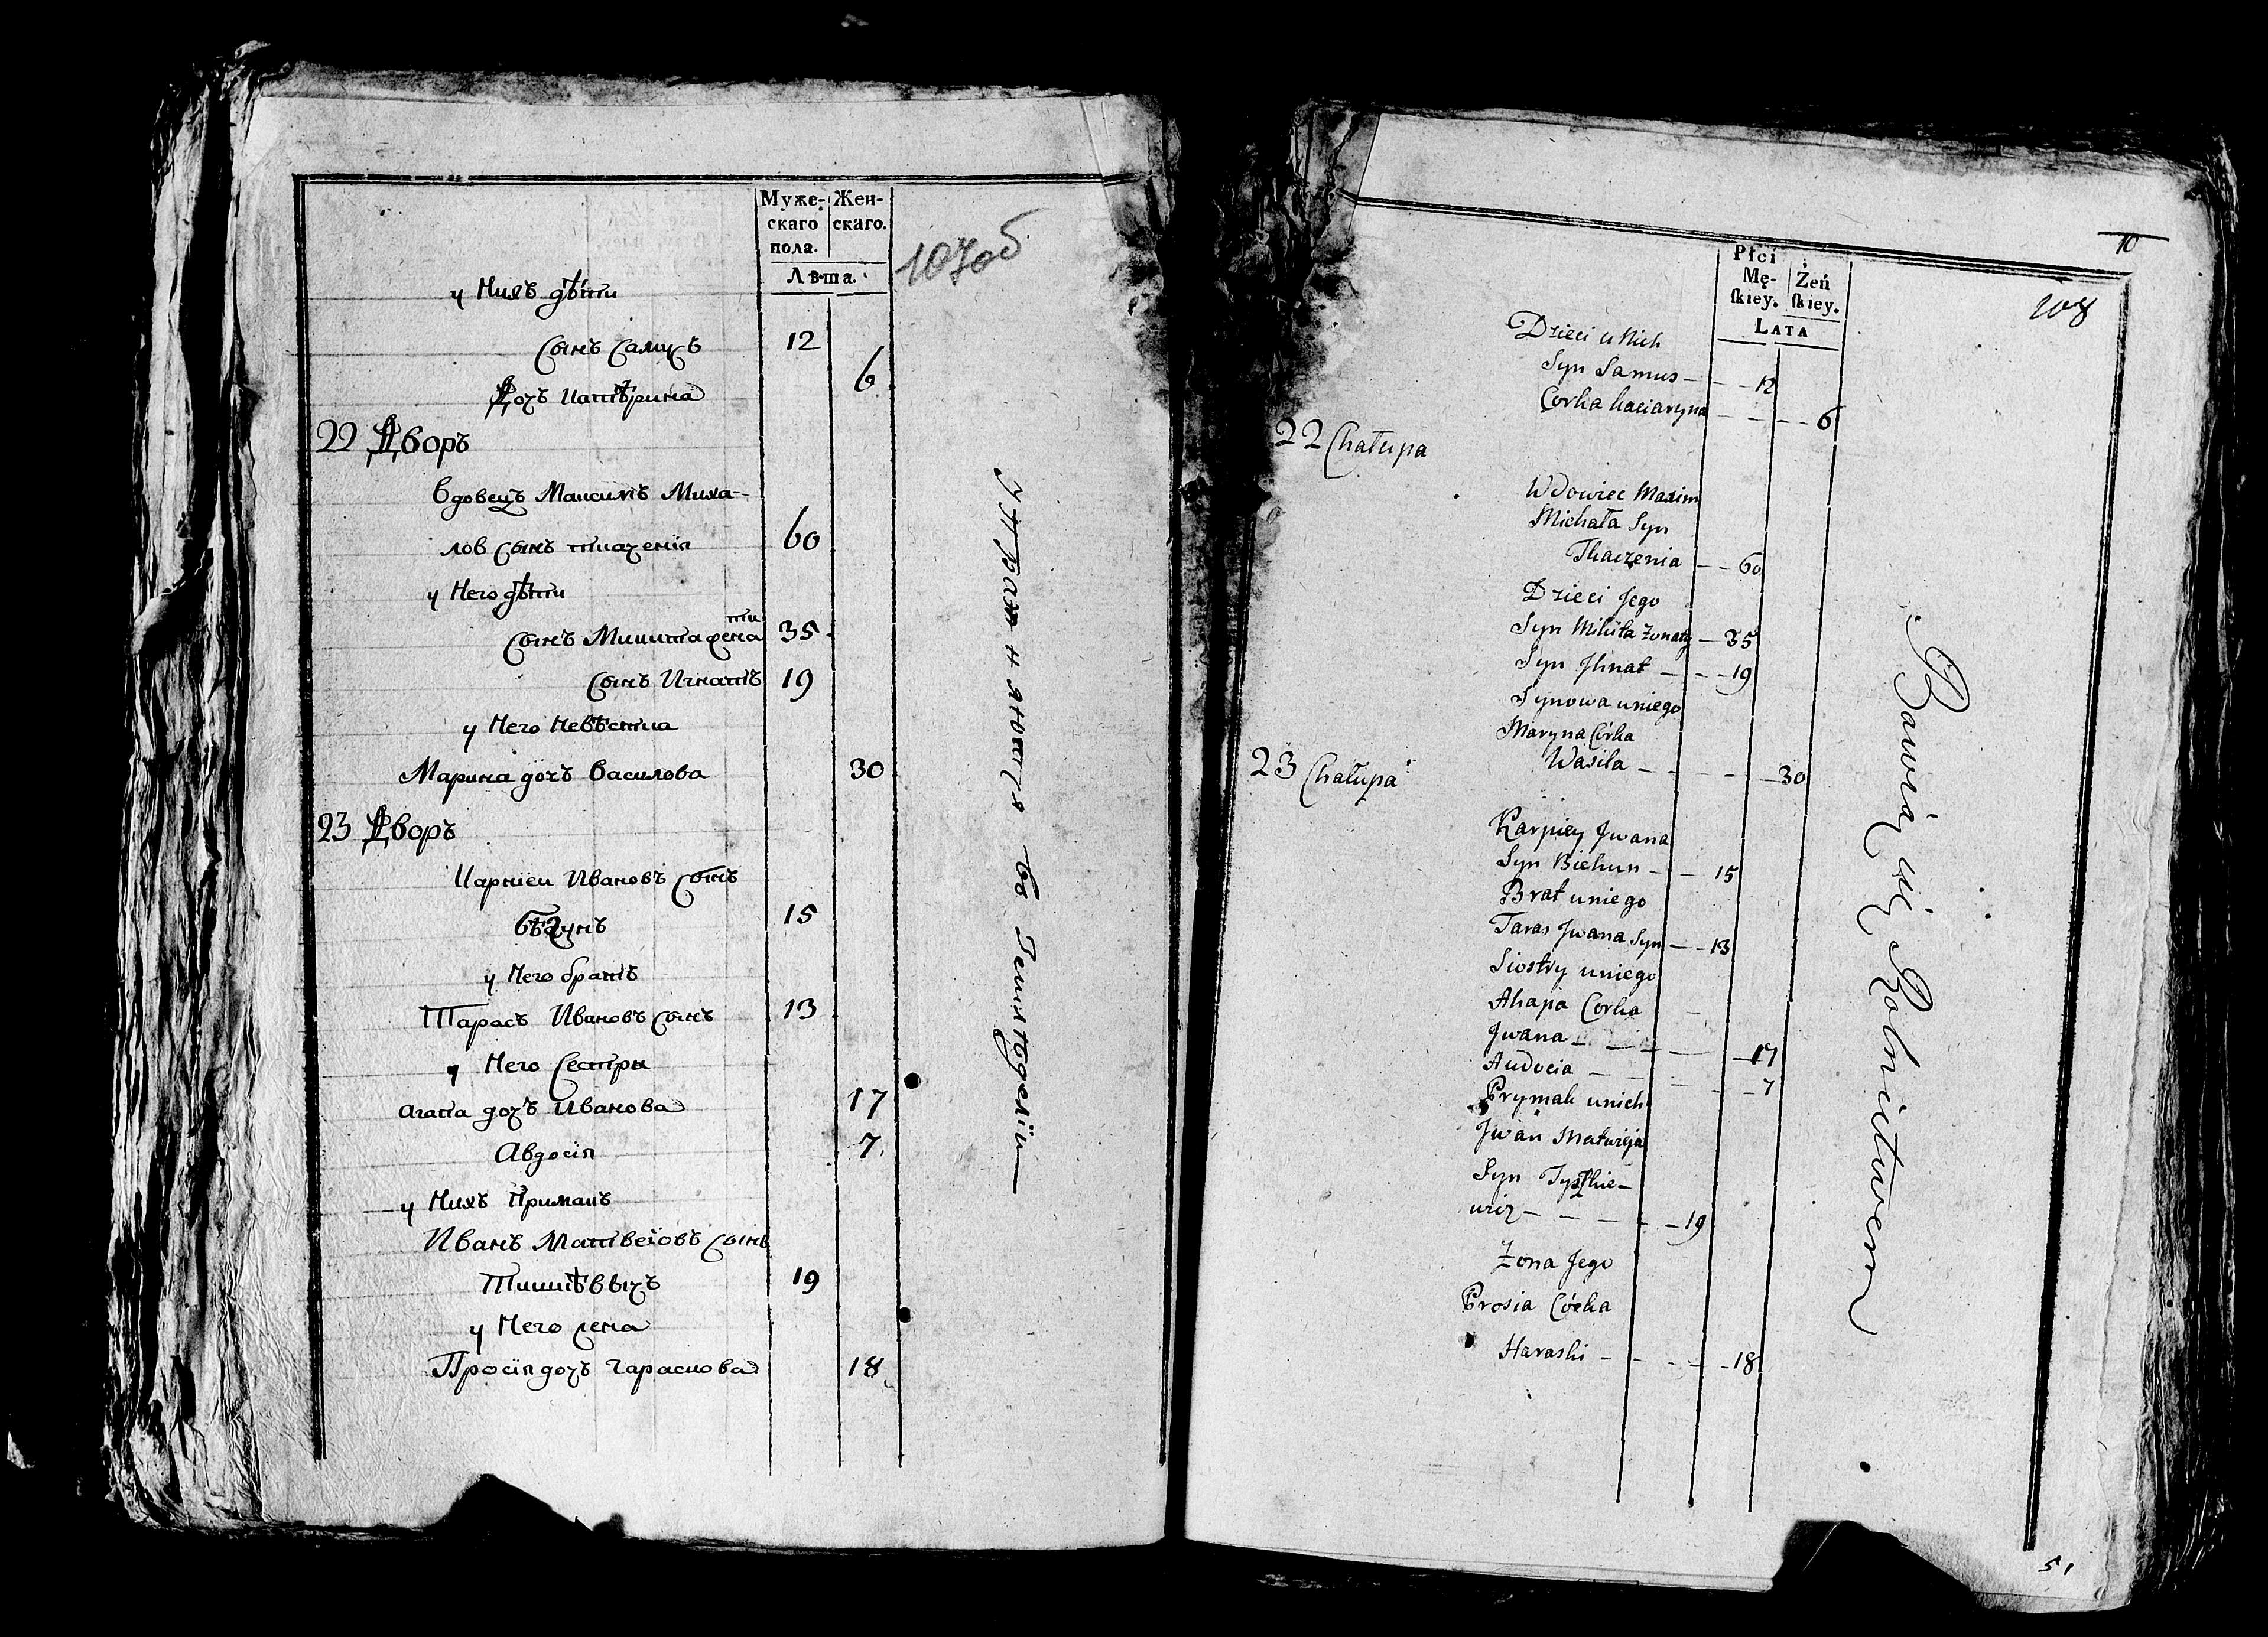 Муже-
скаго
пола.
Жен-
скаго.
Лѣта.
107об
у Нихъ дѣти
Сынъ Самусъ 12
Дочъ Катѣрина 6
22 Дворъ
Вдовецъ Максимъ Миха-
лов Сынъ ткаченія 60
у Него дѣти
Сынъ Микита 35
Сынъ Игнатъ 19
у Него Невѣстка
Марина дочъ Василова 30
23 Дворъ
Карпіеи Ивановъ Сынъ
бѣгунъ 15
у Него братъ
Тарасъ Ивановъ Сынъ 13
у Него Сестры
агапа дочъ Иванова 17
Авдосія 7
у Нихъ Примакъ
Иванъ Матвеіовъ Сынъ
Тишкѣвычъ 19
у Него жена
Просія дочъ Гараскова 18
Упражняются въ Земледеліи
10
108
Płci
Mę-
ſkiey.
Żeń
ſkiey.
LATA
Dzieci u Nich
Syn Samus - - - 12
Corka kaciaryna - - - - 6
22 Chałupa
Wdowiec Maxim
Michała Syn
Tkaczenia - - 60
Dzieci Jego
Syn Mikita żonaty - 35
Syn Jhnat - - - 19
Synowa uniego
Maryna Córka
Wasila - - - - - 30
23 Chałupa
Karpiey Jwana
Syn Biehun - - 15
Brat uniego
Taras Jwana Syn - - 13
Siostry uniego
Ahapa Corka
Jwana - - - - - 17
Audocia - - - - - 7
Prymak unich
Jwan Matwieja
Syn Tyszkie-
wicz - - - - - 19
Żona Jego
Prosia Córka
Haraski - - - - - 18
Bawią się Rolnictwem
51